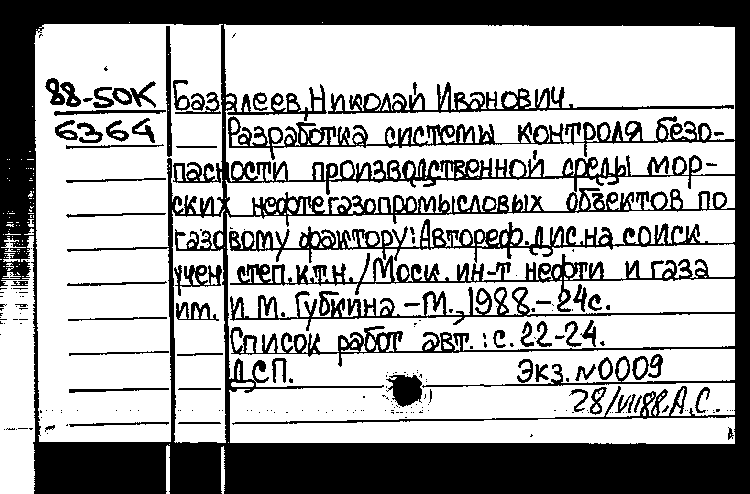 88-50К Базалеев, Николай Иванович.
6364 Разработка системы контроля безо-
пасности производственной среды мор-
ских нефтегазопромысловых объектов по
газовому фактору: Автореф. дис. на соиск.
учен. степ. к.т.н. / Моск. ин-т нефти и газа
им. И. М. Губкина. - М., 1988. - 24с.
Список работ авт.: с. 22-24.
ДСП. Экз. №0009
28/VII88. А.С.